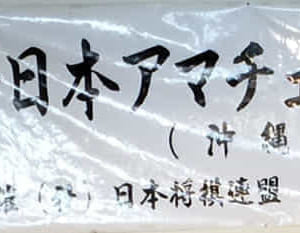 日本アマチュ
(沖縄
催(社)日本将棋連盟